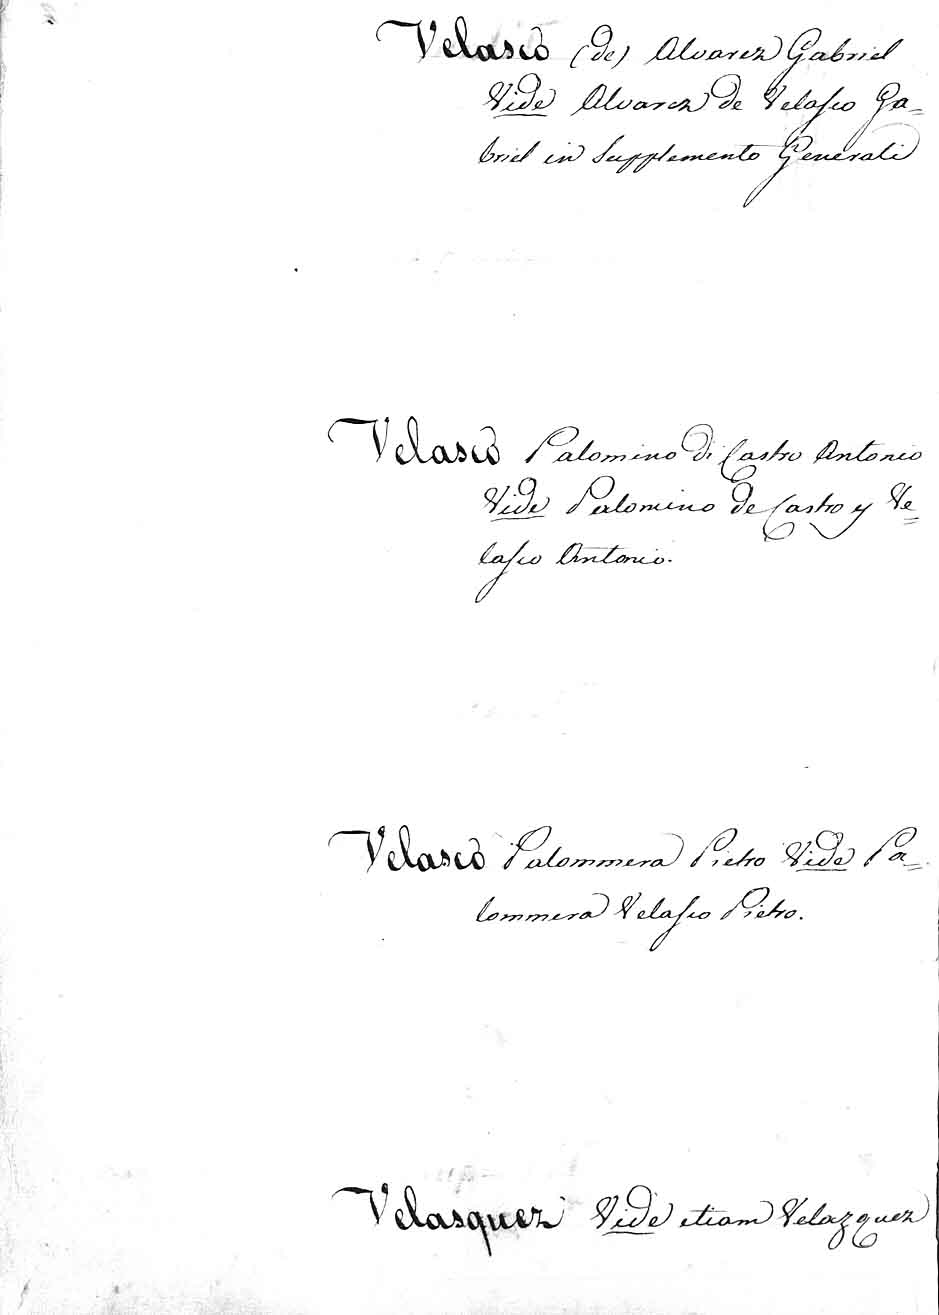 Velasco (de) Alvarez Gabriel
Vide Alvarez de Velasco Ga=
briel in Supplemento Generali
Velasco Palomino di Castro Antonio
Vide Palomino de Castro y Ve=
lasco Antonio.
Velasco Palommera Pietro Vide Pa=
lommera Velasco Pietro.
Velasquez Vide etiam Velazquez